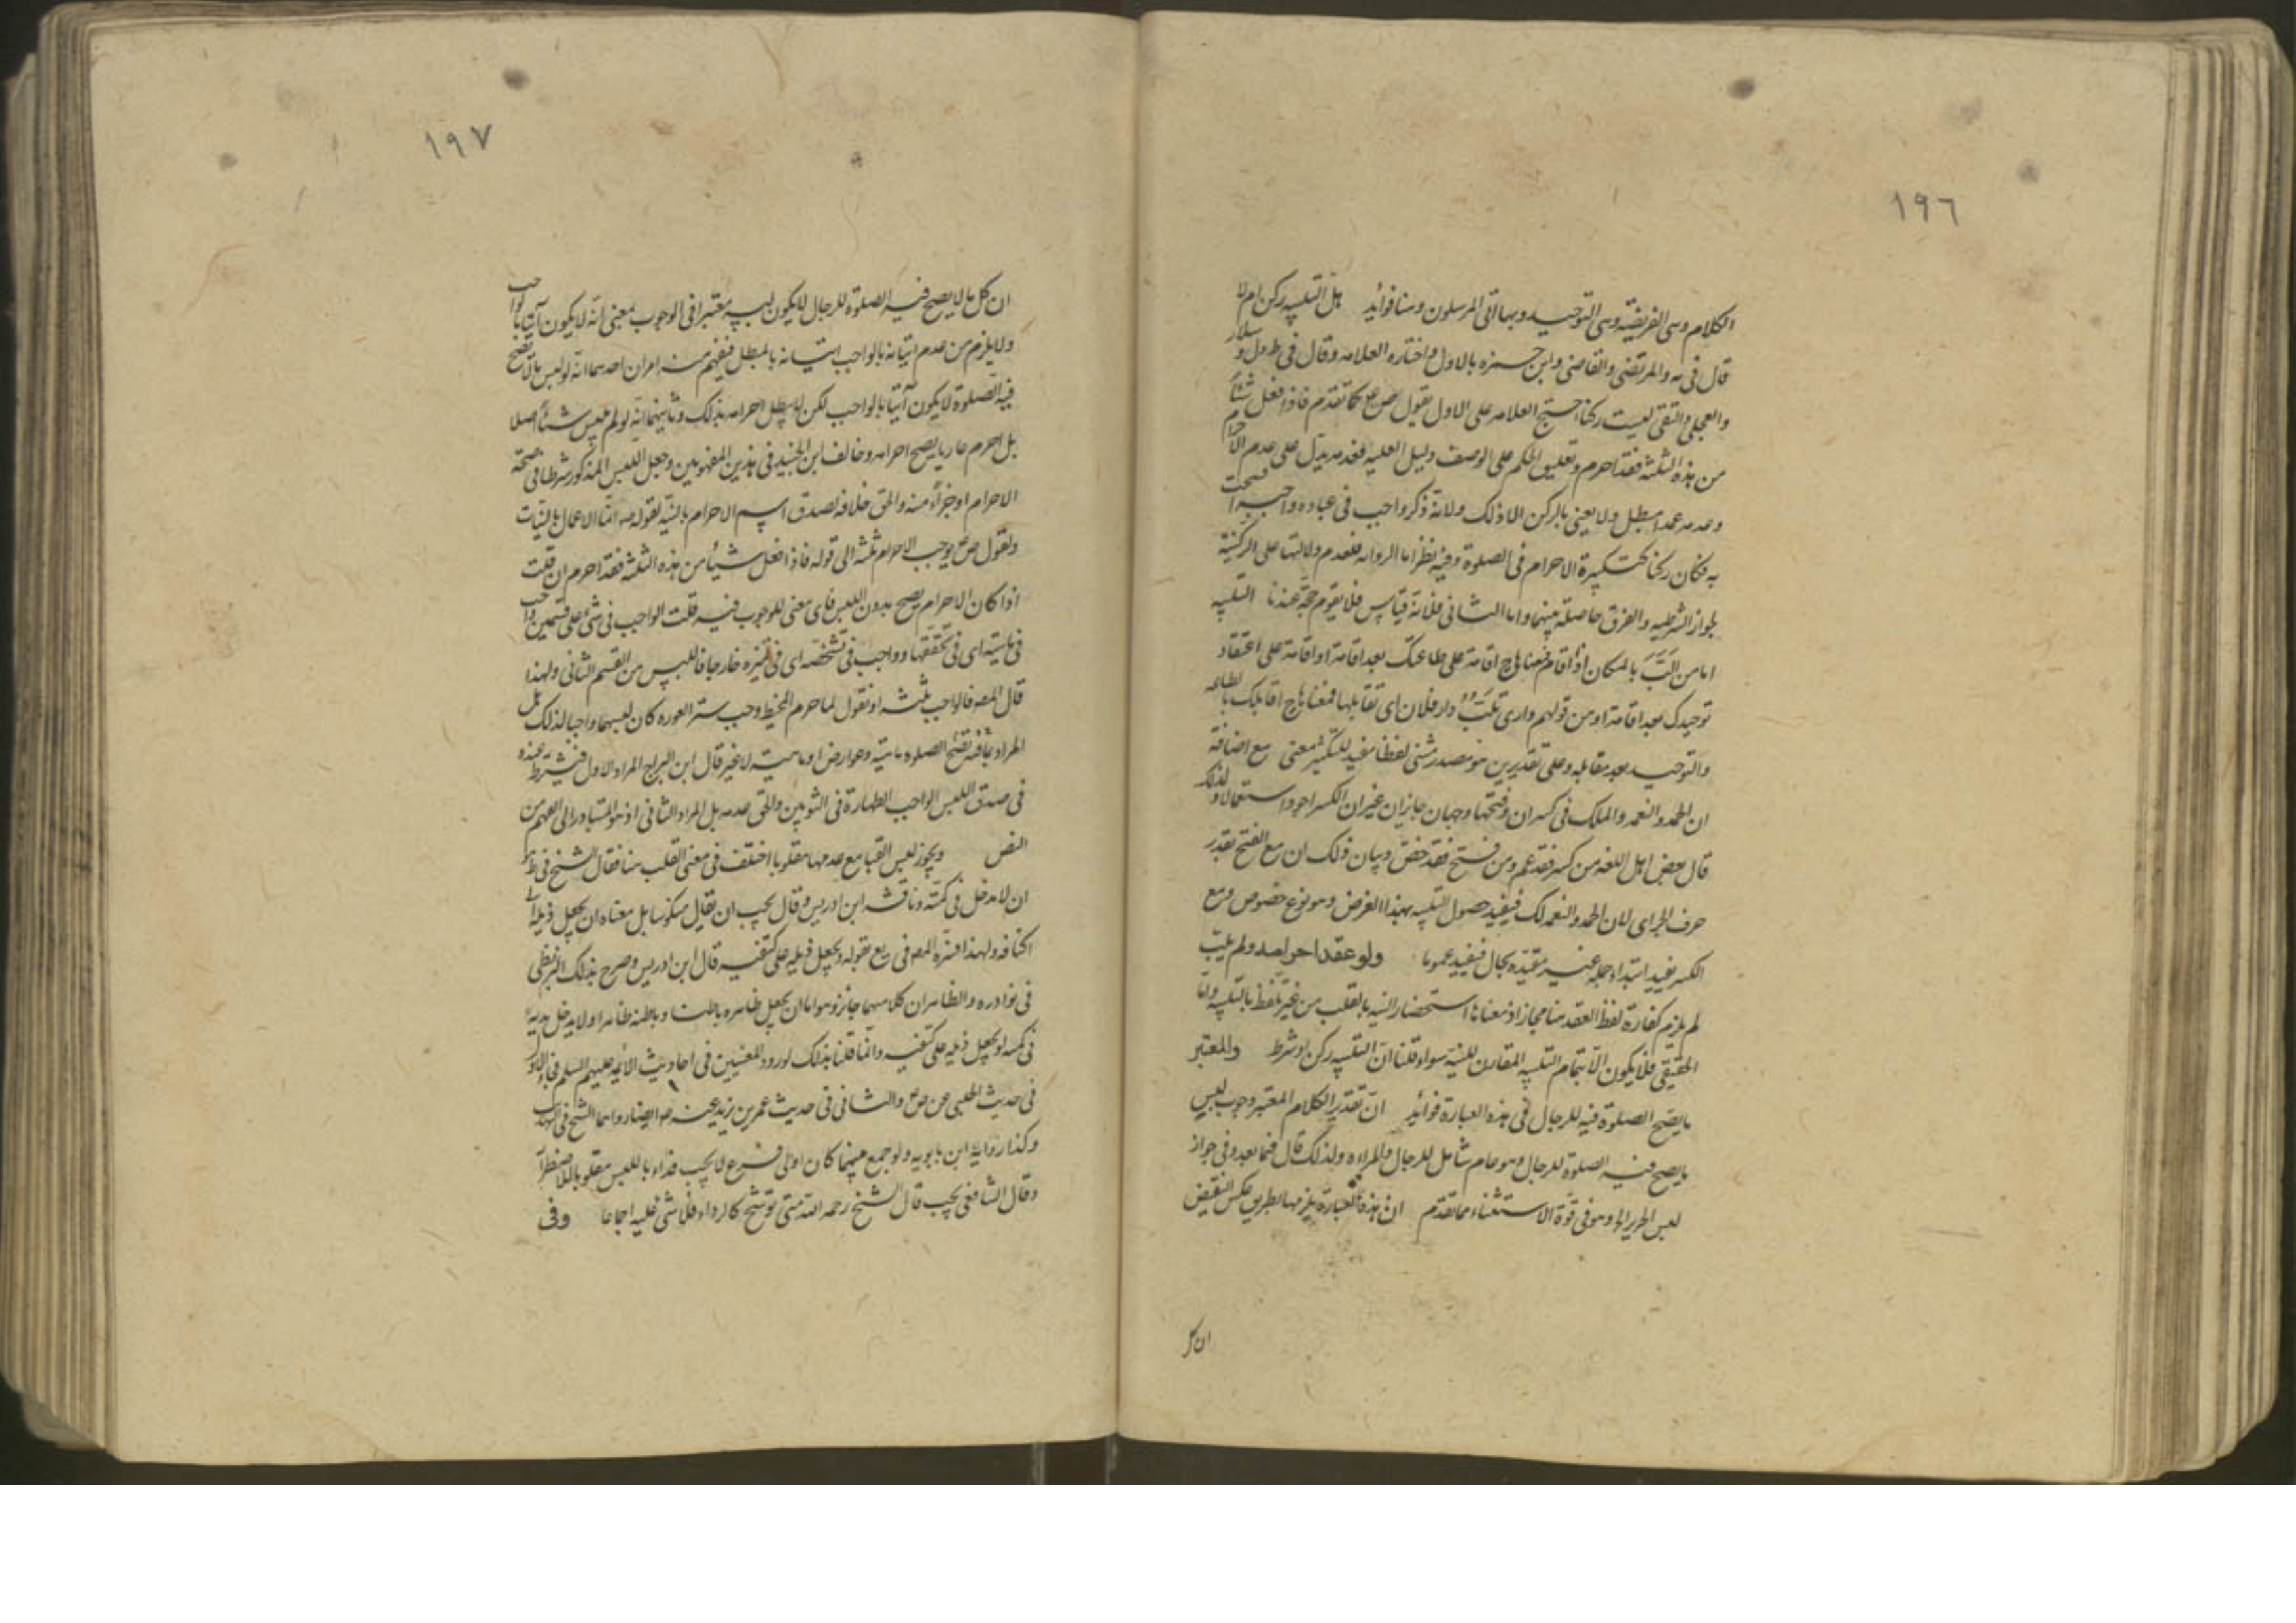 ١٩٦
الكلام وسى الفريضة وسى التوحيد وبها اتى المرسلون وهنا فوائد هل التلبيه ركن ام لا
قال فى يه والمرتضى والقاضى وابن حمزه بالاول واختاره العلامه وقال فى ط ول و سلار
والعجلى والتقى ليست ركنا احتج العلامه على الاول بقول ص ع كما تقدم فاذا فعل شيئا
من هذه الثلثة فقد احرم وتعليق الحكم على الوصف دليل العليه فعدمه يدل على عدم الاحرام
وعدمه عمدا مبطل ولا يعنى بالركن الا ذلك ولانه ذكر واجب فى عباده واجبة افتتحت
به فكان ركنا كتكبيرة الاحرام فى الصلوة وفيه نظر اما الروايه فلعدم دلالتها على الركنية
لجواز الشرطيه والفرق حاصل بينهما واما الثانى فلانه قياس فلا يقوم حجة عندنا التلبيه
اما من الب بالمكان اذا اقام فمعناها ح اقامة على طاعتك بعد اقامة او اقامة على اعتقاد
توحيدك بعد اقامة او من قولهم دارى تلب دار فلان اى تقابلها فمعناها ح اقابلك بالطاعه
والتوحيد بعد مقابله وعلى تقديرين هو مصدر مثنى لفظا مفيد للتكثير معنى مع اضافة
ان الحمد والنعمه والملك فى كسر ان وفتحها وجهان جايزان غير ان الكسر اجود استعمالا ولذلك
قال بعض اهل اللغه من كسر فقد عم ومن فتح فقد خص وبيان ذلك ان مع الفتح تقدر
حرف الجر اى لان الحمد والنعمه لك فيفيد حصول التلبيه بهذا الغرض وهو نوع خصوص ومع
الكسر يفيد ابتداء جمله غير مقيده بحال فيفيد عموما ولو عقد احرامه ولم يلب
لم يلزم كفارة لفظ العقد هنا مجاز اذ معناها استحضار النيه بالقلب من غير تلفظ بالتلبيه واما
الحقيقى فلا يكون الا بتمام التلبيه المقارن للنيه سواء قلنا ان التلبيه ركن او شرط والمعتبر
ما يصح الصلوة فيه للرجال فى هذه العبارة فوائد ان تقدير الكلام المعتبر وجوب لبس
ما يصح فيه الصلوة للرجال وهو عام شامل للرجال والمراءه ولذلك قال فيما بعد وفى جواز
لبس الحرير لها وهو فى قوة الاستثناء مما تقدم ان هذه العبارة يلزمها بطريق عكس النقيض
ان كل
١٩٧
ان كل ما لا يصح فيه الصلوة للرجال لا يكون لبسه معتبرا فى الوجوب بمعنى انه لا يكون آتيا بالواجب
ولا يلزم من عدم اتيانه بالواجب اتيانه بالمبطل فيفهم منه امران احدهما انه لو لبس ما لا تصح
فيه الصلوة لا يكون آتيا بالواجب لكن لا يبطل احرامه بذلك وثانيهما انه لو لم يلبس شيئا اصلا
بل احرم عاريا يصح احرامه وخالف ابن الجنيد فى هذين المفهومين وجعل اللبس المذكور شرطا فى صحة
الاحرام او جزاء منه والحق خلافه لصدق اسم الاحرام بالنية لقوله ص انما الاعمال بالنيات
ولقول ص ع يوجب الاحرام ثلثة الى قوله فاذا فعل شيئا من هذه الثلثة فقد احرم ان قلت
اذا كان الاحرام يصح بدون اللبس فاى معنى للوجوب فيه قلت الواجب فى شئ على قسمين واجب
فى ماهيته اى فى تحققها وواجب فى تشخصه اى فى تميزه خارجا فاللبس من القسم الثانى ولهذا
قال المصه فالواجب ثلثه او نقول لما حرم المخيط وجب ستر العوره كان لبسهما واجبا لذلك هل
المراد بما فيه تصح الصلوه ماهيته وعوارض او ماهيته لا غير قال ابن البراج المراد الاول فيشترط عنده
فى صدق اللبس الواجب الطهارة فى الثوبين والحق عدمه بل المراد الثانى اذ هو المتبادر الى الفهم من
النص ويجوز لبس القبا مع عدمهما مقلوبا اختلف فى معنى القلب هنا فقال الشيخ فى ط
ان لا يدخل فى كمه وناقشه ابن ادريس وقال يجب ان يقال منكوسا بل معناه ان يجعل ذيله الى
اكتافه ولهذا فسره المصه فى يع بقوله ويجعل ذيله على كتفيه قال ابن ادريس وصرح بذلك البزنطى
فى نوادره والظاهر ان كلا منهما جائز وهو اما ان يجعل ظاهره باطنا وباطنه ظاهرا ولا يدخل يديه
فى كميه او يجعل ذيله على كتفيه وانما قلنا بذلك لورود المعنيين فى احاديث الائمه عليهم السلم فجاء الاول
فى حديث الحلبى عن ص ع والثانى فى حديث عمر بن يزيد عنه ع ايضا رواهما الشيخ فى التهذيب
وكذا رواية ابن بابويه ولو جمع بينهما كان اولى فرع لا يجب فداء باللبس مقلوبا للاضطرار
وقال الشافعى يجب قال الشيخ رحمه الله متى توشح كالرداء فلا شئ عليه اجماعا وفى